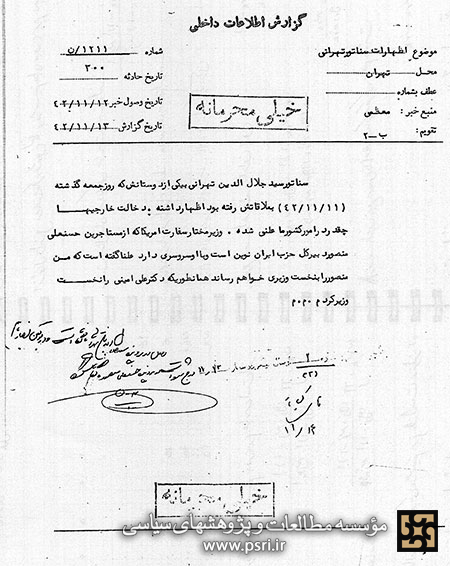 گزارش اطلاعات داخلی
موضوع : اظهارات سناتور تهرانی
محل : تهران
عطف بشماره
منبع خبر : معشص
تقویم : ب – ۲
شماره ۱۲۱۱/ن
۳۰۰
تاریخ حادثه
تاریخ وصول خبر ۴۲/۱۱/۱۲
تاریخ گزارش ۴۲/۱۱/۱۳
خیلی محرمانه
سناتور سید جلال الدین تهرانی بیکی از دوستانش که روز جمعه گذشته
(۴۲/۱۱/۱۱) بملاقاتش رفته بود اظهار داشته . دخالت خارجیها
چقدر در امور کشور ما علنی شده . وزیر مختار سفارت امریکا که از مستاجرین حسنعلی
منصور دبیر کل حزب ایران نوین است و با او سر و سری دارد علنا گفته است که من
منصور را بنخست وزیری خواهم رساند همانطوریکه دکتر علی امینی را نخست
وزیر کردم م م م
۲۳۱
۱۱/۱۴
خیلی محرمانه
مؤسسه مطالعات و پژوهشهای سیاسی
www.psri.ir